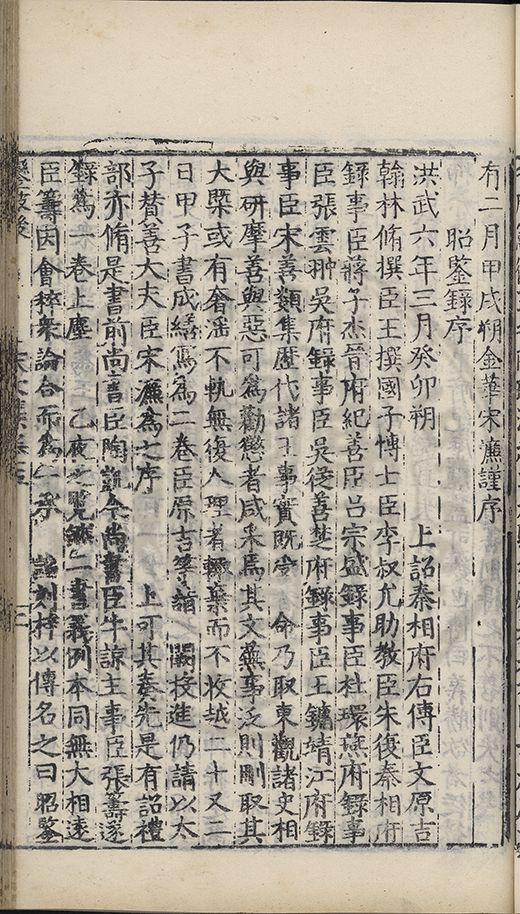 有二月甲戌朔金華宋濂謹序
昭鑒錄序
洪武六年三月癸卯朔 上詔秦相府右傅臣文原吉
翰林脩撰臣王撰國子博士臣李叔允助教臣朱復秦相府
錄事臣蔣子杰晉府紀善臣呂宗盛錄事臣杜環燕府錄事
臣張雲翀吳府錄事臣吳從善楚府錄事臣王鏞靖江府錄
事臣宋善類集歷代諸王事實既受 命乃取東觀諸史相
與研摩善與惡可為勸懲者咸采焉其文蕪事泛則刪取其
大槩或有奢淫不軌無復人理者輒棄而不收越二十又二
日甲子書成繕寫為二卷臣原吉等詣 闕投進仍請以太
子贊善大夫臣宋濂為之序 上可其奏先是有詔禮
部亦脩是書前尚書臣陶凱今尚書臣牛諒主事臣張籌遂
錄為一卷上塵 乙夜之覽然二書義例本同無大相遠
臣籌因會稡眾論合而為一 謹刻梓以傳名之曰昭鑒